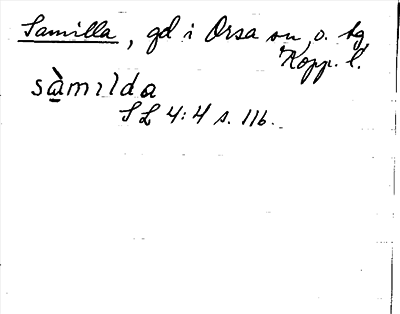 Samilla, gd i Orsa sn, o. by
Kopp. l.
sàmılda
SL 4:4 s. 116.